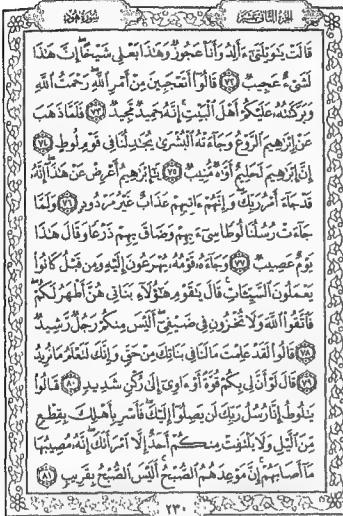 الجزء الثاني عشر سورة هود
قَالَتْ يَٰوَيْلَتَىٰٓ ءَأَلِدُ وَأَنَا۠ عَجُوزٌ وَهَٰذَا بَعْلِى شَيْخًا ۖ إِنَّ هَٰذَا
لَشَىْءٌ عَجِيبٌ ٧٢ قَالُوٓا۟ أَتَعْجَبِينَ مِنْ أَمْرِ ٱللَّهِ ۖ رَحْمَتُ ٱللَّهِ
وَبَرَكَٰتُهُۥ عَلَيْكُمْ أَهْلَ ٱلْبَيْتِ ۚ إِنَّهُۥ حَمِيدٌ مَّجِيدٌ ٧٣ فَلَمَّا ذَهَبَ
عَنْ إِبْرَٰهِيمَ ٱلرَّوْعُ وَجَآءَتْهُ ٱلْبُشْرَىٰ يُجَٰدِلُنَا فِى قَوْمِ لُوطٍ ٧٤
إِنَّ إِبْرَٰهِيمَ لَحَلِيمٌ أَوَّٰهٌ مُّنِيبٌ ٧٥ يَٰٓإِبْرَٰهِيمُ أَعْرِضْ عَنْ هَٰذَآ ۖ إِنَّهُۥ
قَدْ جَآءَ أَمْرُ رَبِّكَ ۖ وَإِنَّهُمْ ءَاتِيهِمْ عَذَابٌ غَيْرُ مَرْدُودٍ ٧٦ وَلَمَّا
جَآءَتْ رُسُلُنَا لُوطًا سِىٓءَ بِهِمْ وَضَاقَ بِهِمْ ذَرْعًا وَقَالَ هَٰذَا
يَوْمٌ عَصِيبٌ ٧٧ وَجَآءَهُۥ قَوْمُهُۥ يُهْرَعُونَ إِلَيْهِ وَمِن قَبْلُ كَانُوا۟
يَعْمَلُونَ ٱلسَّيِّـَٔاتِ ۚ قَالَ يَٰقَوْمِ هَٰٓؤُلَآءِ بَنَاتِى هُنَّ أَطْهَرُ لَكُمْ ۖ
فَٱتَّقُوا۟ ٱللَّهَ وَلَا تُخْزُونِ فِى ضَيْفِىٓ ۖ أَلَيْسَ مِنكُمْ رَجُلٌ رَّشِيدٌ
٧٨ قَالُوا۟ لَقَدْ عَلِمْتَ مَا لَنَا فِى بَنَاتِكَ مِنْ حَقٍّ وَإِنَّكَ لَتَعْلَمُ مَا نُرِيدُ
٧٩ قَالَ لَوْ أَنَّ لِى بِكُمْ قُوَّةً أَوْ ءَاوِىٓ إِلَىٰ رُكْنٍ شَدِيدٍ ٨٠ قَالُوا۟
يَٰلُوطُ إِنَّا رُسُلُ رَبِّكَ لَن يَصِلُوٓا۟ إِلَيْكَ ۖ فَأَسْرِ بِأَهْلِكَ بِقِطْعٍ
مِّنَ ٱلَّيْلِ وَلَا يَلْتَفِتْ مِنكُمْ أَحَدٌ إِلَّا ٱمْرَأَتَكَ ۖ إِنَّهُۥ مُصِيبُهَا
مَآ أَصَابَهُمْ ۚ إِنَّ مَوْعِدَهُمُ ٱلصُّبْحُ ۚ أَلَيْسَ ٱلصُّبْحُ بِقَرِيبٍ ٨١
٢٣٠